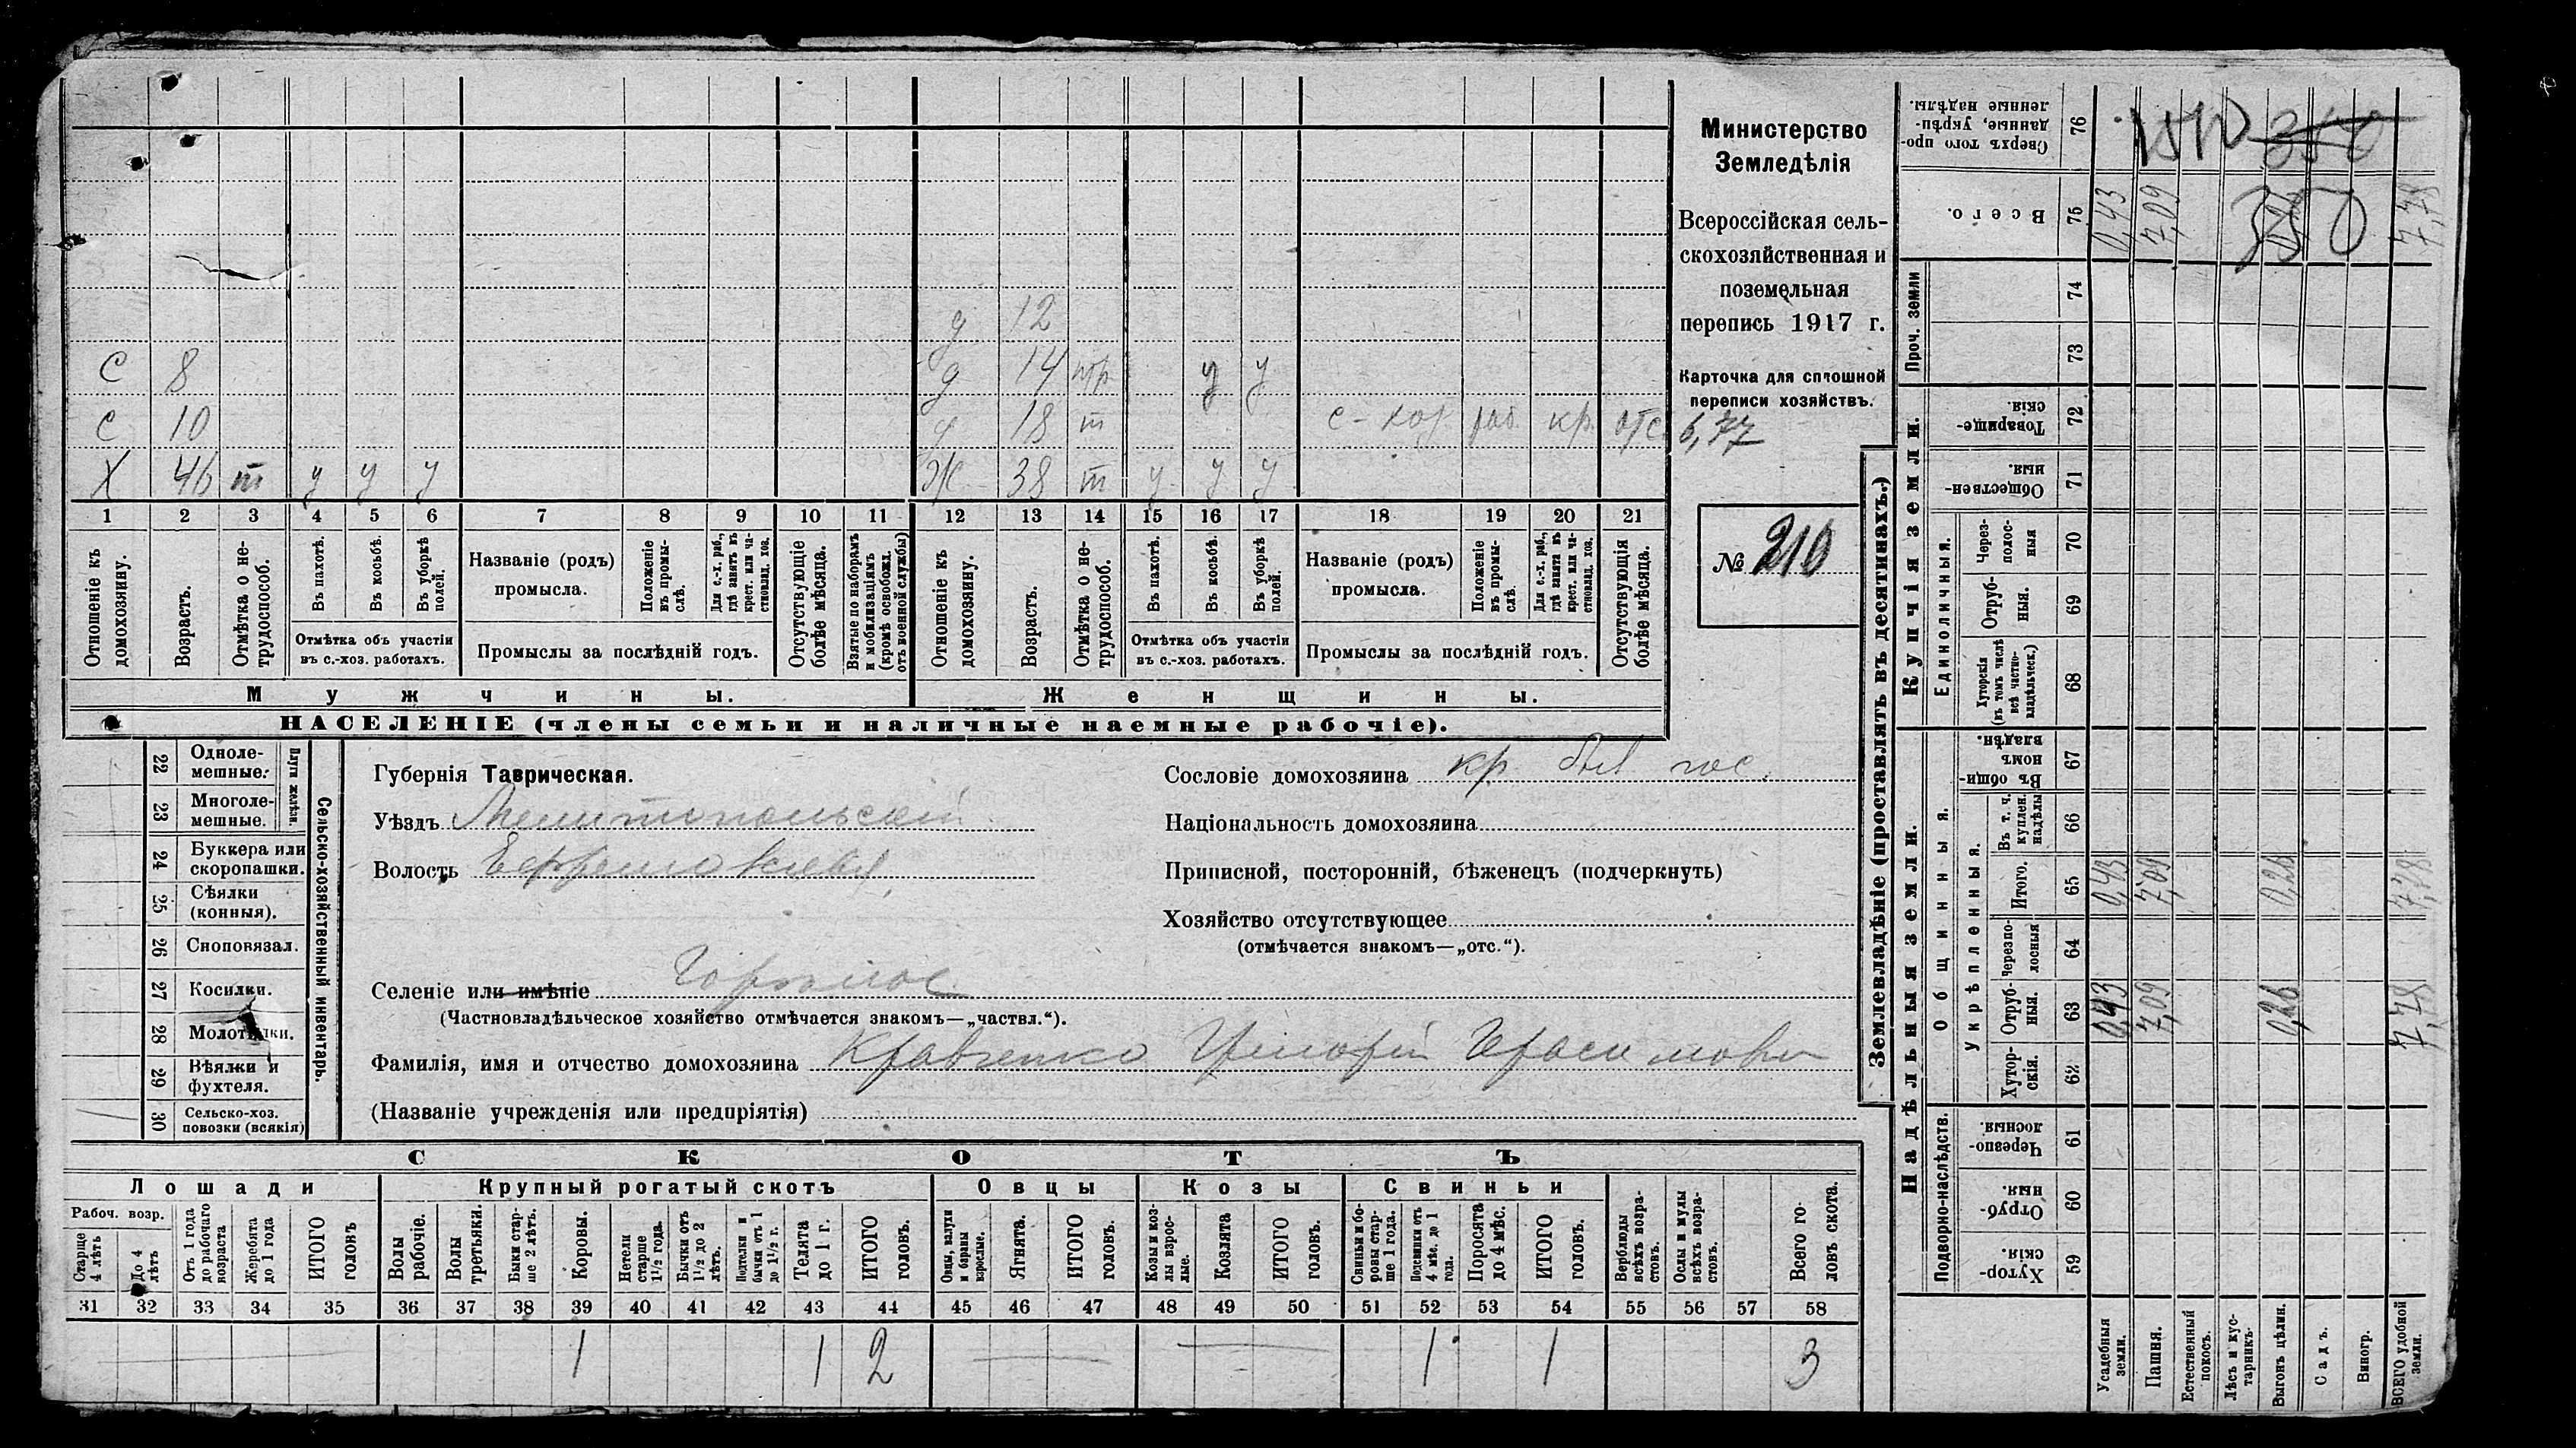 д 12
С 8 д 14 пр у у
С 10 д 18 т с-хоз. раб. кр. отс.
Х 46 т у у у Ж 38 т у у у
1 2 3 4 5 6 7 8 9 10 11 12 13 14 15 16 17 18 19 20 21
Отношеніе къ домохозяину.
Возрастъ.
Отмѣтка о нетрудоспособ.
Въ пахотѣ.
Въ косьбѣ.
Въ уборкѣ полей.
Отмѣтка объ участіи
въ с.-хоз. работахъ.
Названіе (родъ)
промысла.
Положеніе въ промыслѣ.
Для с.-х. раб., гдѣ занятъ въ крест. или частновлад. хоз.
Промыслы за послѣдній годъ.
Отсутствующіе болѣе мѣсяца.
Взятые по наборамъ и мобилизаціямъ (кромѣ освобожд. отъ военной службы)
Отношеніе къ домохозяину.
Возрастъ.
Отмѣтка о нетрудоспособ.
Въ пахотѣ.
Въ косьбѣ.
Въ уборкѣ полей.
Отмѣтка объ участіи
въ с.-хоз. работахъ.
Названіе (родъ)
промысла.
Положеніе въ промыслѣ.
Для с.-х. раб., гдѣ занята въ крест. или частновлад. хоз.
Промыслы за послѣдній годъ.
Отсутствующія болѣе мѣсяца.
Мужчины. Женщины.
НАСЕЛЕНІЕ (члены семьи и наличные наемные рабочіе).
Министерство
Земледѣлія
Всероссійская сель-
скохозяйственная и
поземельная
перепись 1917 г.
Карточка для сплошной
переписи хозяйствъ.
6,77
№ 210
22 Одноле-
мешные.
23 Многоле-
мешные.
Плуги желѣзн.
24 Буккера или
скоропашки.
25 Сѣялки
(конныя).
26 Сноповязал.
27 Косилки.
28 Молотилки.
29 Вѣялки и
фухтеля.
30 Сельско-хоз.
повозки (всякія)
Сельско-хозяйственный инвентарь.
Губернія Таврическая.
Уѣздъ Мелитопольскій
Волость
Сословіе домохозяина кр. быв гос.
Національность домохозяина
Приписной, посторонній, бѣженецъ (подчеркнуть)
Хозяйство отсутствующее
(отмѣчается знакомъ—„отс.“).
Селеніе или имѣніе
(Частновладѣльческое хозяйство отмѣчается знакомъ—„частвл.“).
Фамилія, имя и отчество домохозяина Кравченко Григорій Герасимови
(Названіе учрежденія или предпріятія)
СКОТЪ
Лошади Крупный рогатый скотъ Овцы Козы Свиньи
Рабоч. возр.
Старше 4 лѣтъ
До 4 лѣтъ
Отъ 1 года до рабочаго возраста
Жеребята до 1 года
ИТОГО головъ
Волы рабочіе.
Волы третьяки.
Быки старше 2 лѣтъ.
Коровы.
Нетели старше 1½ года.
Бычки отъ 1½ до 2 лѣтъ.
Подтелки и бычки отъ 1 до 1½ г.
Телята до 1 г.
ИТОГО головъ.
Овцы, валухи и бараны взрослые.
Ягнята.
ИТОГО головъ.
Козы и козлы взрослые.
Козлята
ИТОГО головъ.
Свиньи и боровы старше 1 года.
Подсвинки отъ 4 мѣс. до 1 года.
Поросята до 4 мѣс.
ИТОГО головъ.
Верблюды всѣхъ возрастовъ.
Ослы и мулы всѣхъ возрастовъ.
Всего головъ скота.
31 32 33 34 35 36 37 38 39 40 41 42 43 44 45 46 47 48 49 50 51 52 53 54 55 56 57 58
1 1 2 1 1 3
Землевладѣніе (проставлять въ десятинахъ.)
Надѣльныя земли. Купчія земли. Проч. земли
Подворно-наслѣдств. Общинныя. Укрѣпленныя. Единоличныя.
59 Хуторскія.
60 Отрубныя.
61 Черезполосныя.
62 Хуторскія.
63 Отрубныя. 0,43 7,09 0,26 7,78
64 Черезполосныя
65 Итого. 0,43 7,09 0,26 7,78
66 Въ т. ч. куплен. надѣлы
67 Въ общинномъ владѣн.
68 Хуторскія (въ томъ числѣ всѣ частновладѣльческ.)
69 Отрубныя.
70 Черезполосныя
71 Общественныя.
72 Товарищескія.
73
74
75 Всего. 0,43 7,09 7,78
350
76 Сверхъ того проданные, укрѣпленные надѣлы.
350
Усадебныя земли.
Пашня.
Естественный покосъ.
Лѣсъ и кустарникъ.
Выгонъ цѣлин.
Садъ.
Виногр.
ВСЕГО удобной земли.